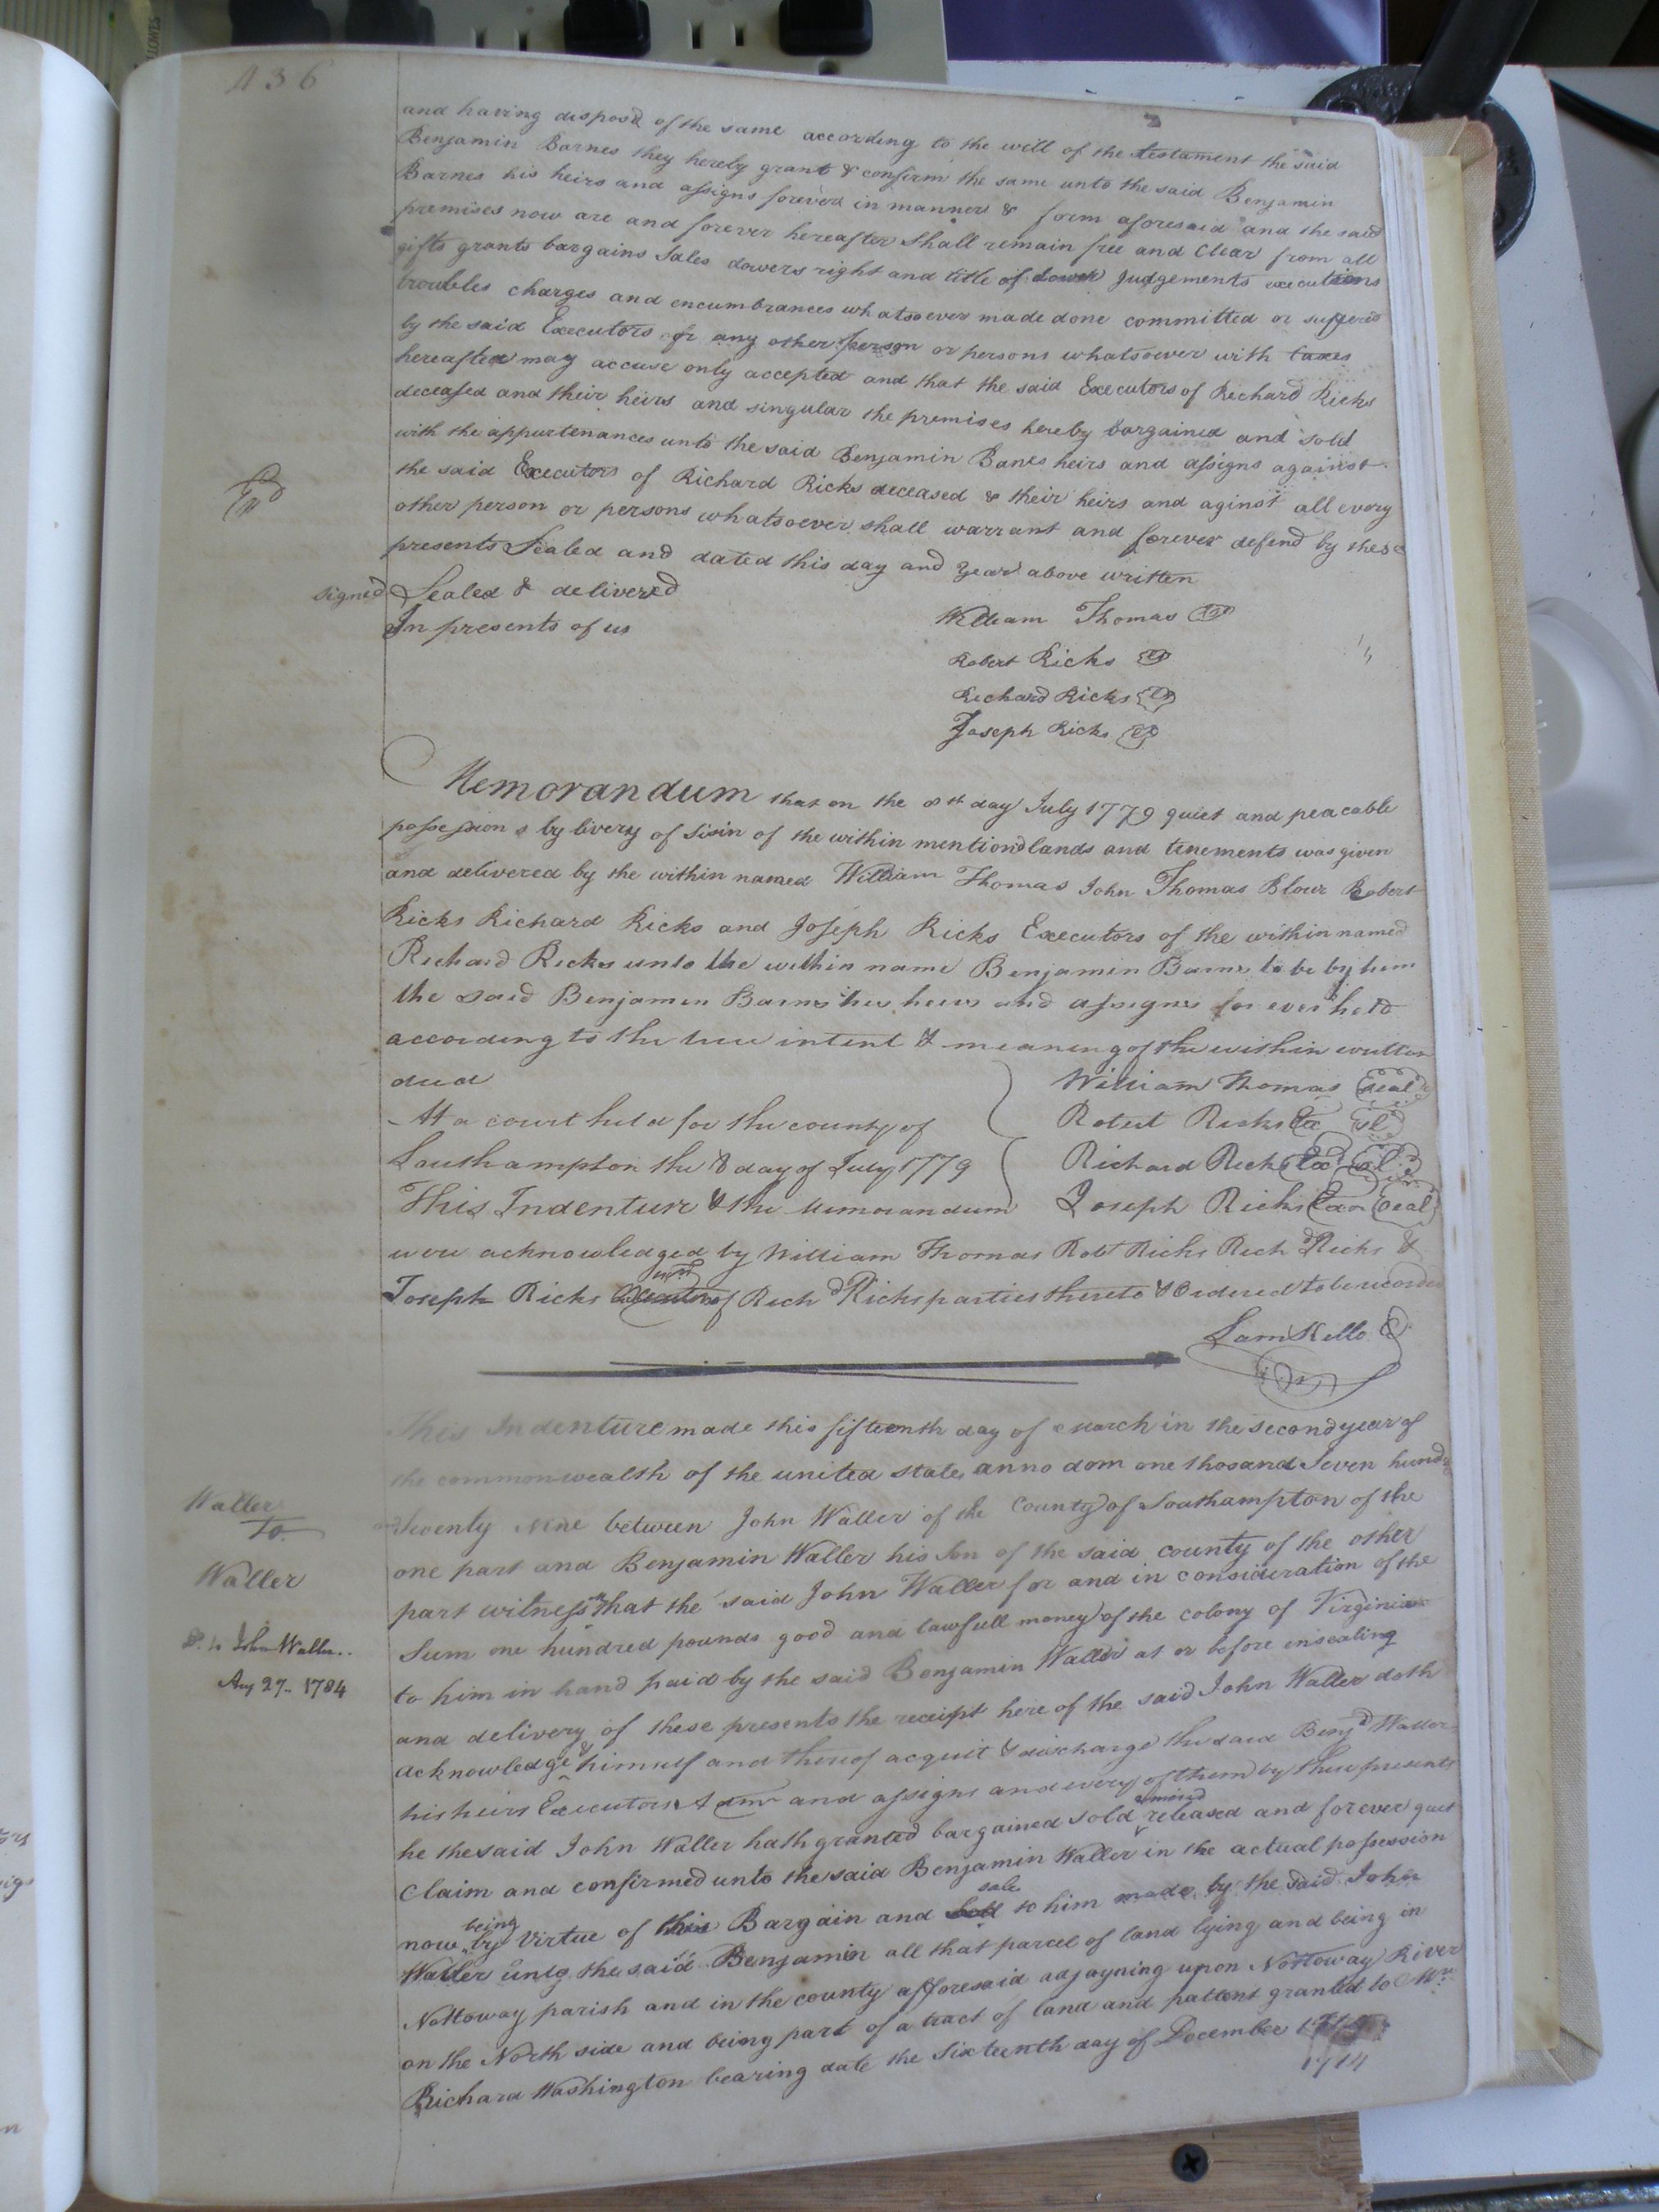 436
and having disposd of the same according to the will of the testament the said
Benjamin Barnes they hereby grant & confirm the same unto the said Benjamin
Barnes his heirs and assigns forever in manner & form aforesaid and the said
premises now are and forever hereafter shall remain free and clear from all
gifts grants bargains sales dowers right and title of dower Judgements executions
troubles charges and encumbrances whatsoever made done committed or sufferd
by the said Executors or any other person or persons whatsoever with taxes
hereafter may accuse only accepted and that the said Executors of Richard Ricks
deceased and their heirs and singular the premises hereby bargained and sold
with the appurtenances unto the said Benjamin Banes heirs and assigns against
the said Executors of Richard Ricks deceased & their heirs and aginst all every
other person or persons whatsoever shall warrant and forever defend by these
presents Sealed and dated this day and year above written
signed Sealed & delivered
In presents of us
William Thomas
Robert Ricks
Richard Ricks
Joseph Ricks
Memorandum that on the 8th day July 1779 quiet and peacable
possession s by livery of Sisin of the within mentiond lands and tenements was given
and delivered by the within named William Thomas John Thomas Blow Robert
Ricks Richard Ricks and Joseph Ricks Executors of the within named
Richard Ricks unto the within name Benjamin Barns to be by him
the said Benjamin Barns his heirs and assigns for ever held
according to the true intent & meaning of the within written
deed
William Thomas seal
At a court held for the county of
Robert Ricks Ex sl
Southampton the 8 day of July 1779
Richard Ricks Ex sl
This Indenture & the Memorandum
Joseph Ricks Exr seal
were acknowledged by William Thomas Robt Ricks Richd Ricks &
Joseph Ricks of Richd Ricks parties thereto & Ordered to be recorded
Sam Kello
This Indenture made this fifteenth day of march in the second year of
the commonwealth of the united states anno dom one thosand Seven hundd
and Seventy Nine between John Waller of the County of Southampton of the
Waller
to
Waller
one part and Benjamin Waller his Son of the said county of the other
part witnesseth that the said John Waller for and in consideration of the
Sum one hundred pounds good and lawfull money of the colony of Virginia
D. to John Waller..
Aug 27.. 1784
to him in hand paid by the said Benjamin Waller at or before insealing
and delivery of these presents the receipt here of the said John Waller doth
acknowledge & himself and thereof acquit & discharge the said Benjd Waller
his heirs Executors Adm and assigns and every of them by these presents
he the said John Waller hath granted bargained sold released and forever quit
Claim and confirmed unto the said Benjamin Waller in the actual possession
now being by Virtue of this Bargain and sale to him made by the said John
Waller unto the said Benjamin all that parcel of land lying and being in
Nottoway parish and in the county afforesaid adjoyning upon Nottoway River
on the North side and being part of a tract of land and pattent granted to Mr
Richard Washington bearing date the Sixteenth day of December
1714